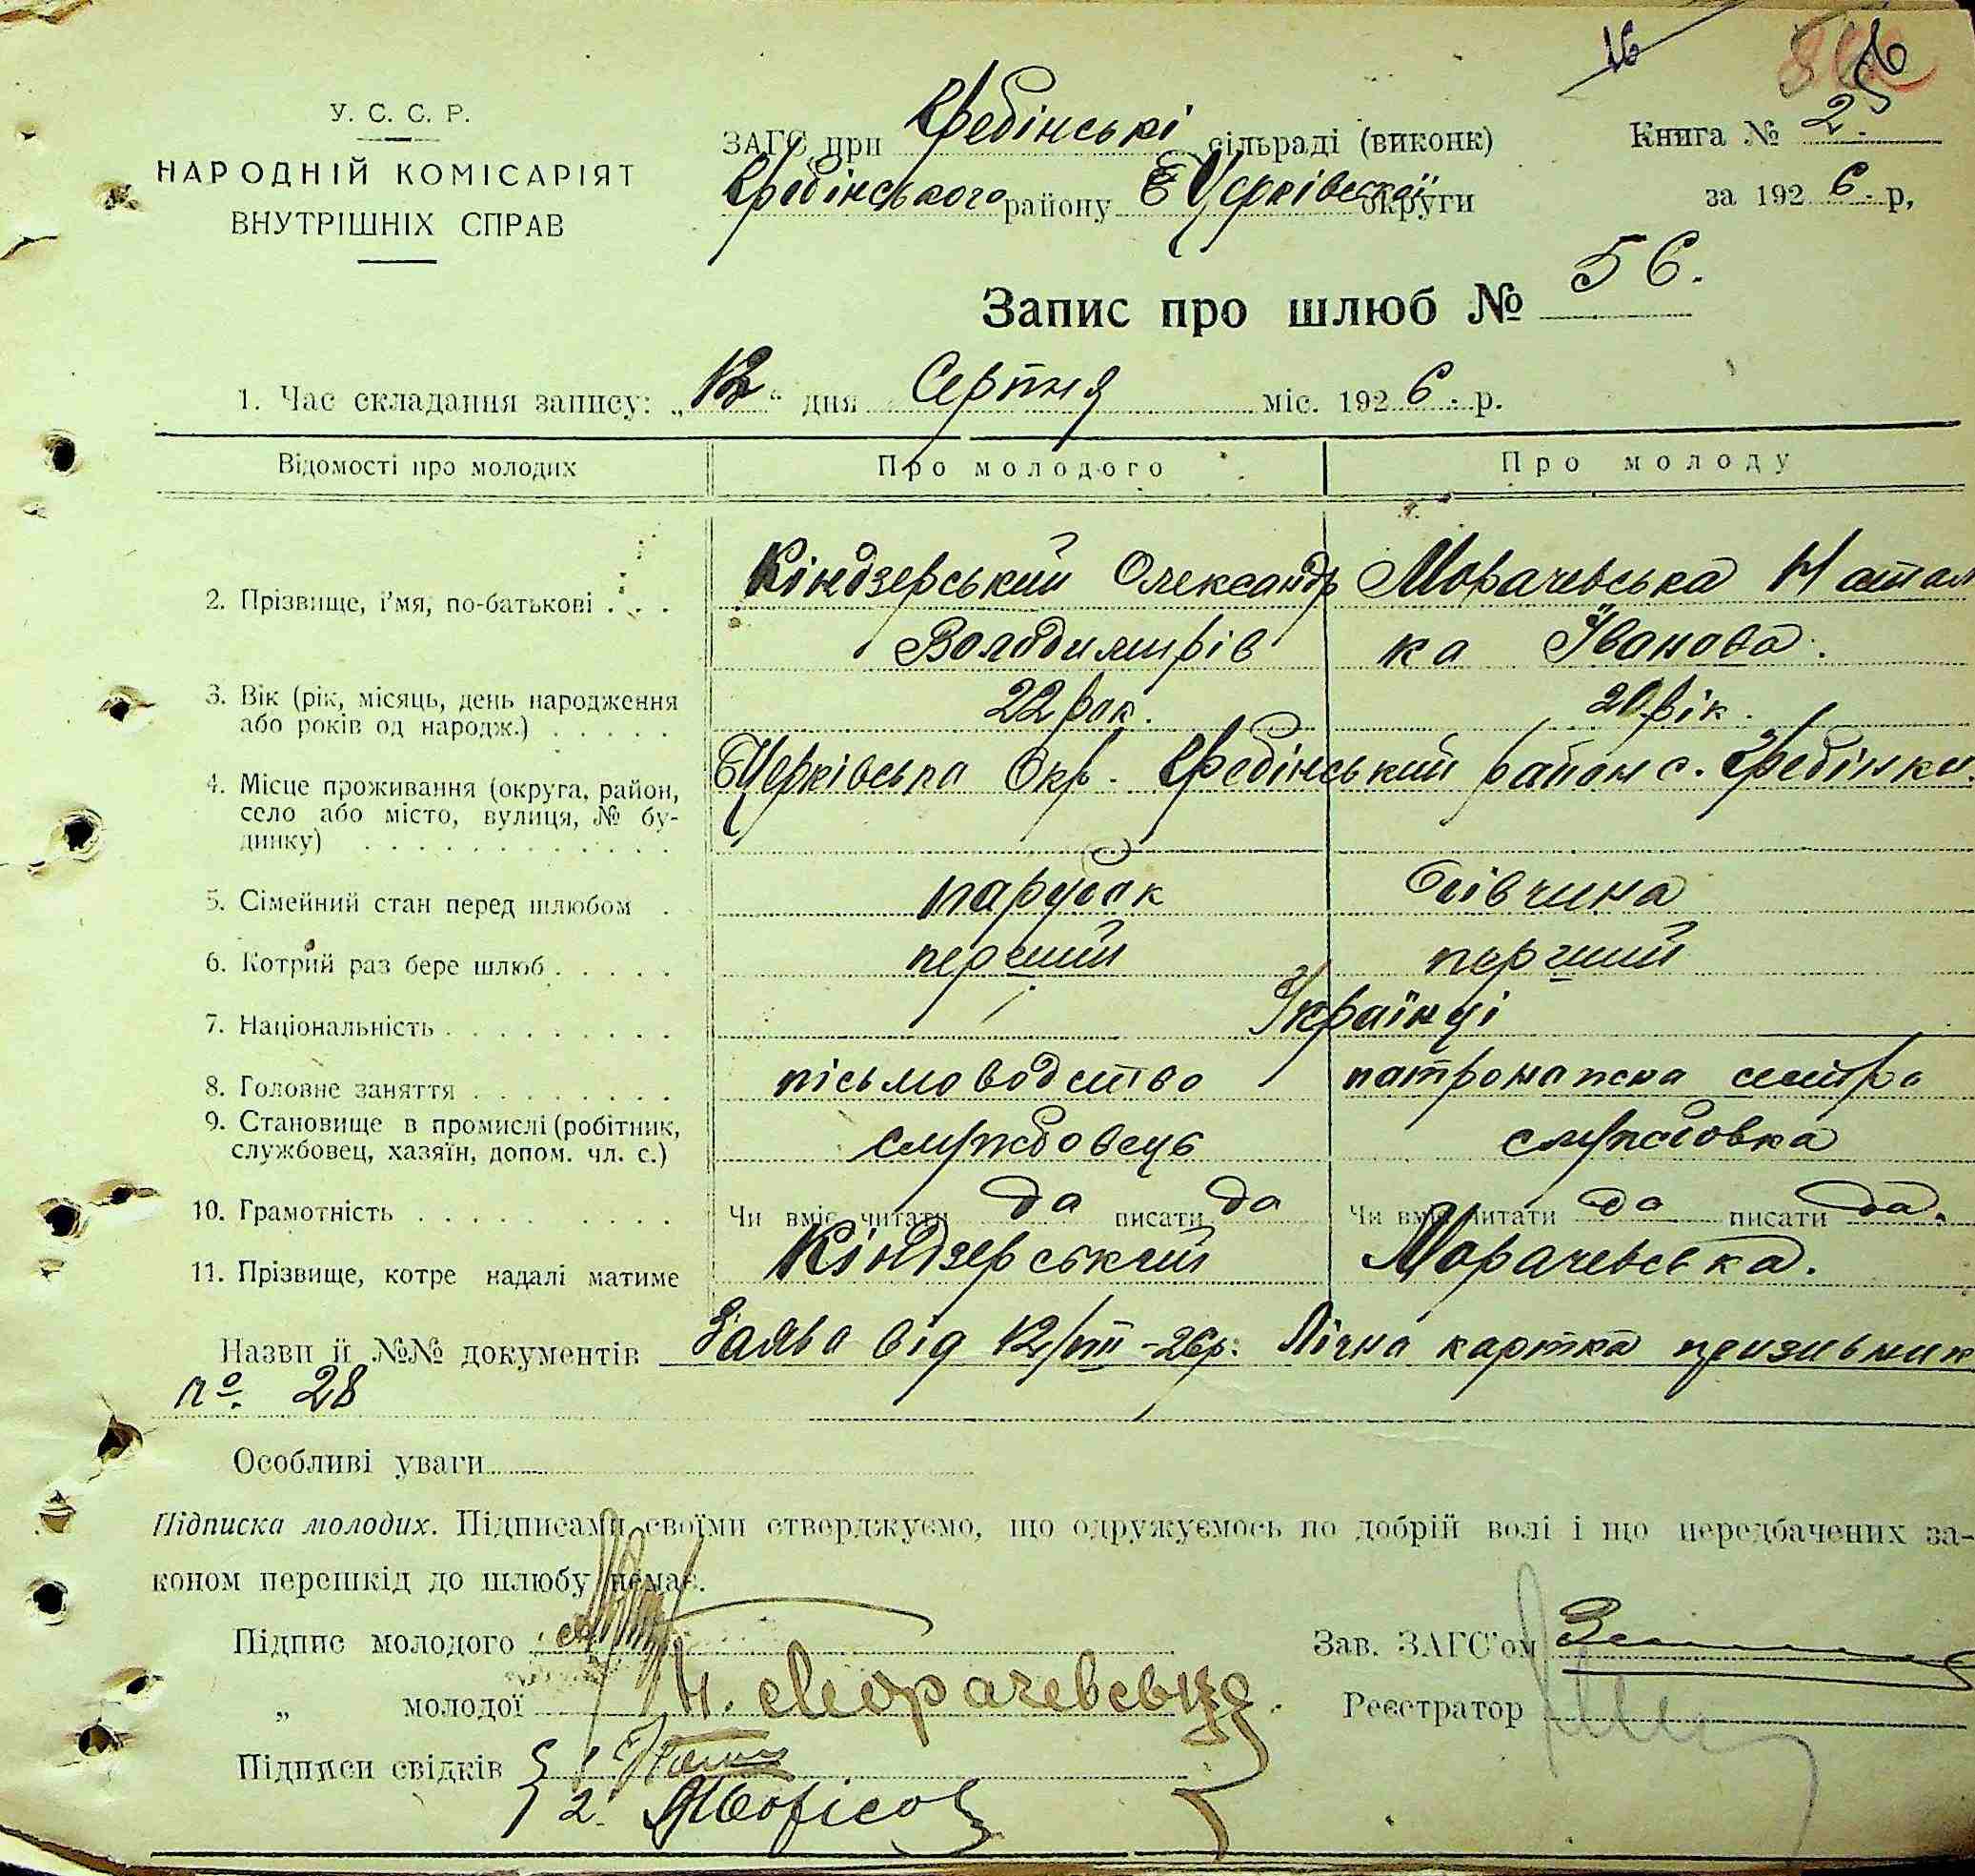 16
56
У. С. С. Р.
НАРОДНІЙ КОМІСАРІЯТ
ВНУТРІШНІХ СПРАВ
ЗАГС при Гребінські сільраді (виконк)
Гребінського району БЦерківської округи
Книга № 2.
за 1926 р,
Запис про шлюб № 56.
1. Час складання запису: „12“ дня Серпня міс. 1926 р.
Відомості про молодих
Про молодого
Про молоду
2. Прізвище, і'мя, по-батькові . . .
Кіндзерський Олександр
Володимирів
Морачевська Натал
ка Іванова.
3. Вік (рік, місяць, день народження
або років од народж.) . . . . .
22 рок.
20 рік.
4. Місце проживання (округа, район,
село або місто, вулиця, № бу-
динку) . . . . . . . . . . . .
БЦерківська Окр. Гребінський район с. Гребінки.
5. Сімейний стан перед шлюбом .
парубок
дівчина
6. Котрий раз бере шлюб . . . . .
перший
перший
7. Національність . . . . . . . . .
Українці
8. Головне заняття . . . . . . . .
пісьмоводство
патронажна сестра
9. Становище в промислі (робітник,
службовец, хазяїн, допом. чл. с.)
службовець
службовка
10. Грамотність . . . . . . . . .
Чи вміє читати да писати да
Чи вміє читати да писати да.
11. Прізвище, котре надалі матиме
Кіндзерський
Морачевська.
Назви й №№ документів Заява від 12/VIII-26р. Лічна картка призивник
№ 28
Особливі уваги
Підписка молодих. Підписами своїми стверджуємо, що одружуємось по добрій волі і що передбачених за-
коном перешкід до шлюбу немає.
Підпис молодого
Зав. ЗАГС'ом
„ молодої Н. Морачевська.
Реєстратор
Підписи свідків 1
2.